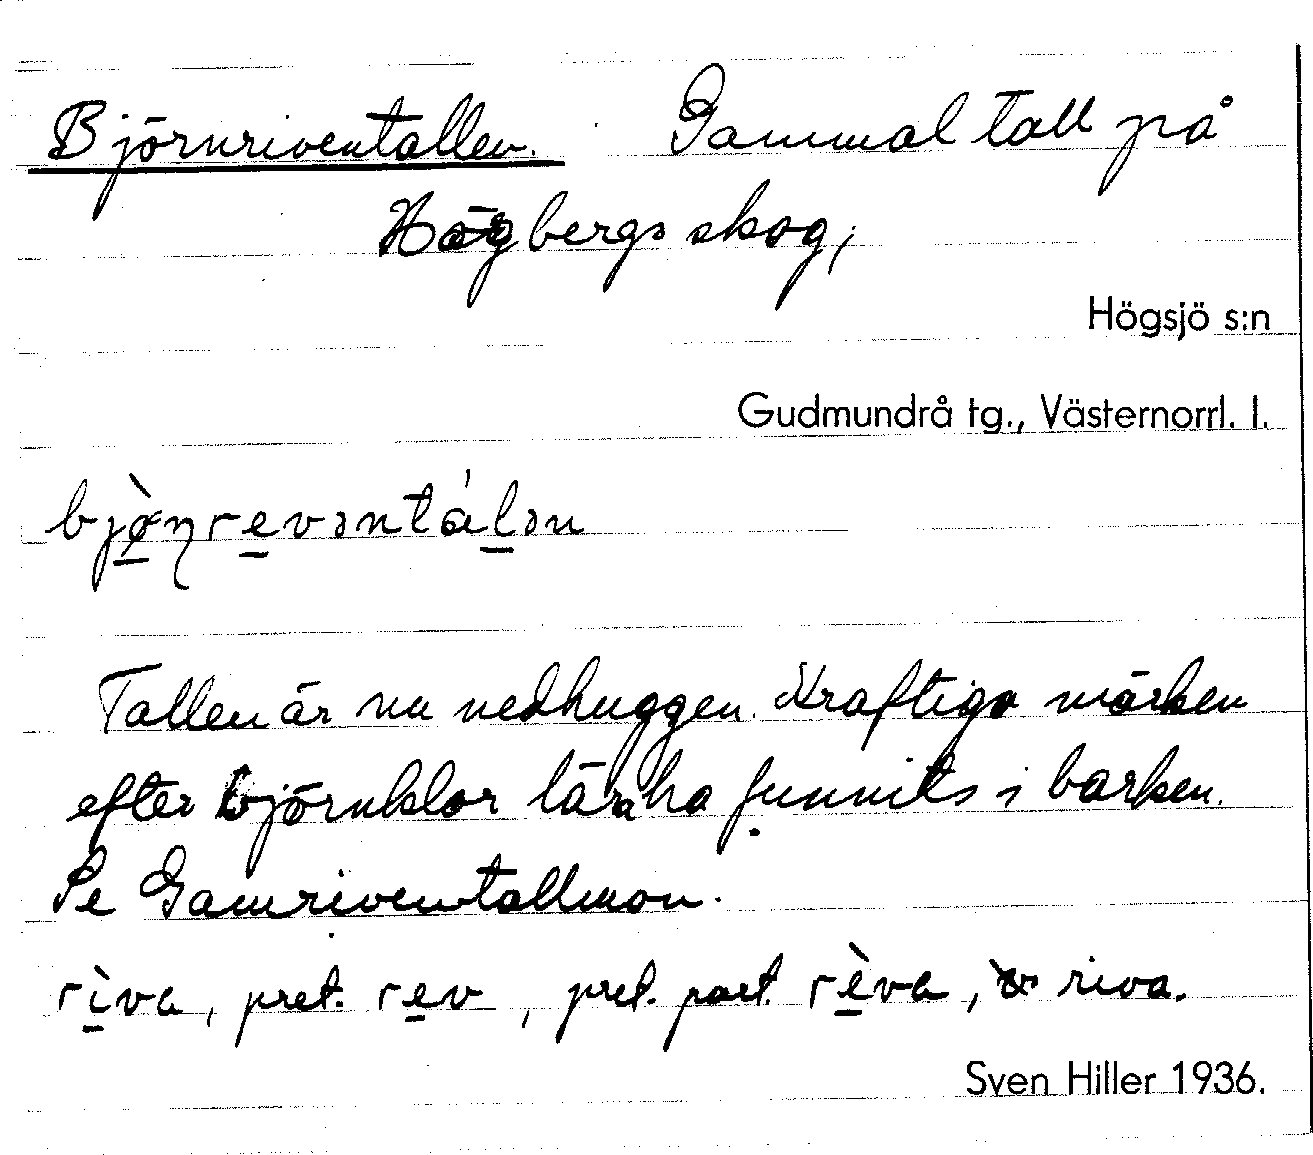 Björnriventallen. Gammal tall på
Högbergs skog,
Högsjö s:n
Gudmundrå tg., Västernorrl. l.
bjø̠̀ɳre̠vəntál̠ən
Tallen är nu nedhuggen. Kraftiga märken
efter björnklor lär ha funnits i barken.
Se Gamriventallmon.
rì̠va, pret. re̠v, pret. part. rè̠va, v riva.
Sven Hiller 1936.